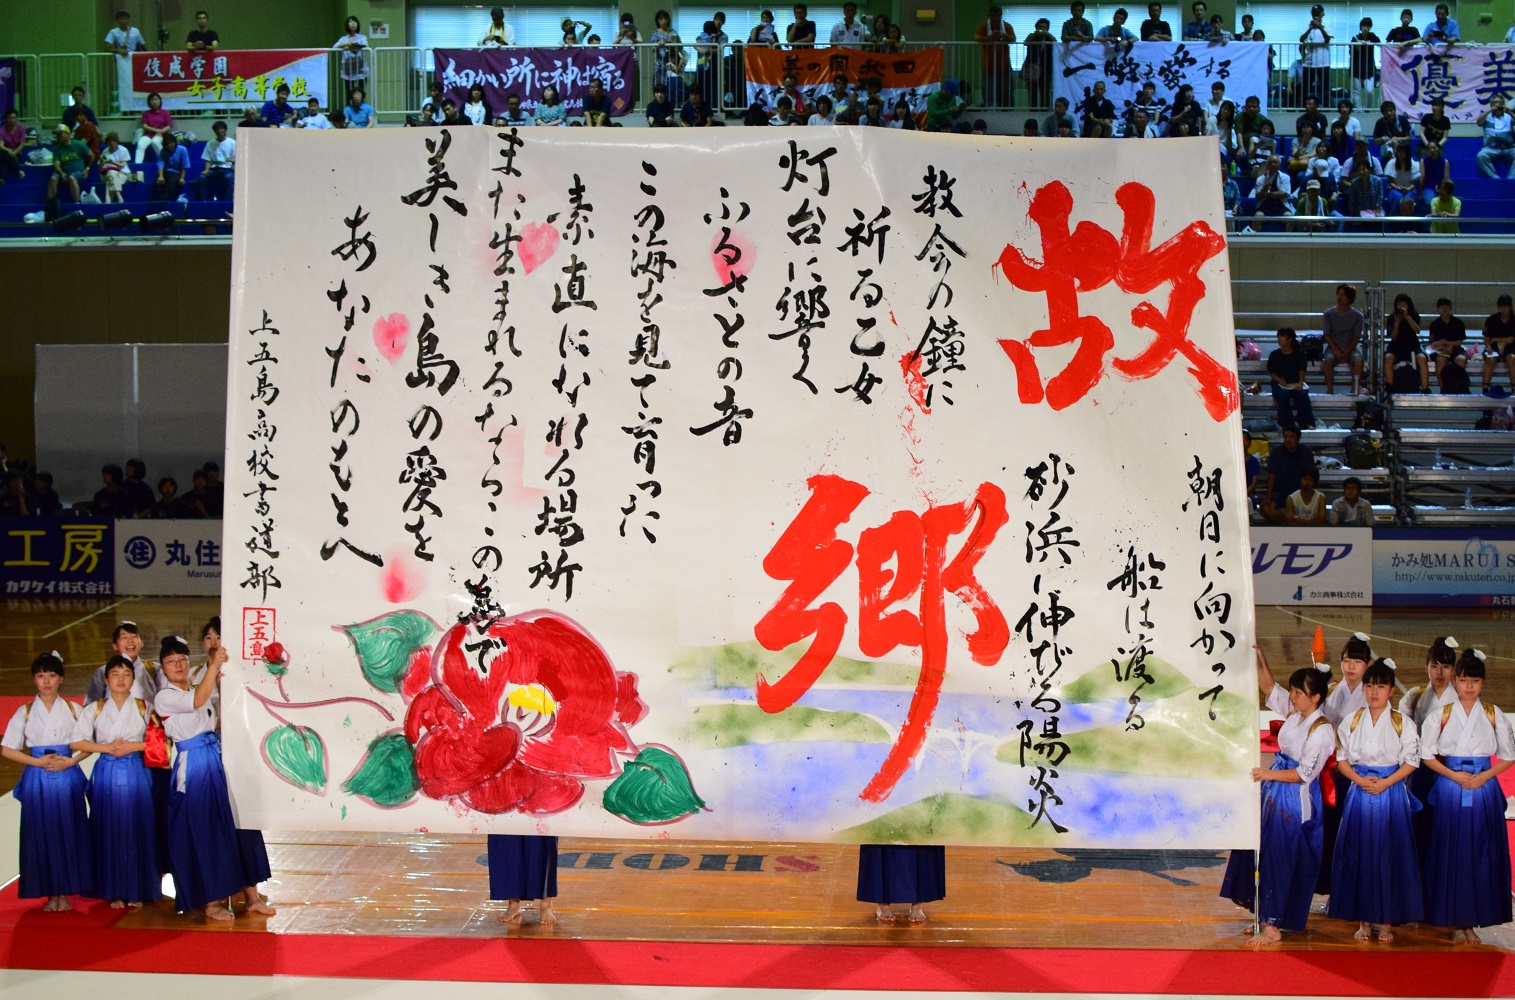 佼成学園
女子高等学校
細かい所に神は宿る
美の国秋田
優美
故郷
朝日に向かって
船は渡る
砂浜に伸びる陽炎
教会の鐘に
祈る乙女
灯台に響く
ふるさとの音
この海を見て育った
素直になれる場所
また生まれるならこの島で
美しき島の愛を
あなたのもとへ
上五島高校書道部
上五島
工房
カタケイ株式会社
丸住
Marusu
ルモア
カミ商事株式会社
かみ処MARUIS
http://www.rakuten.co.jp
丸石
SHODO